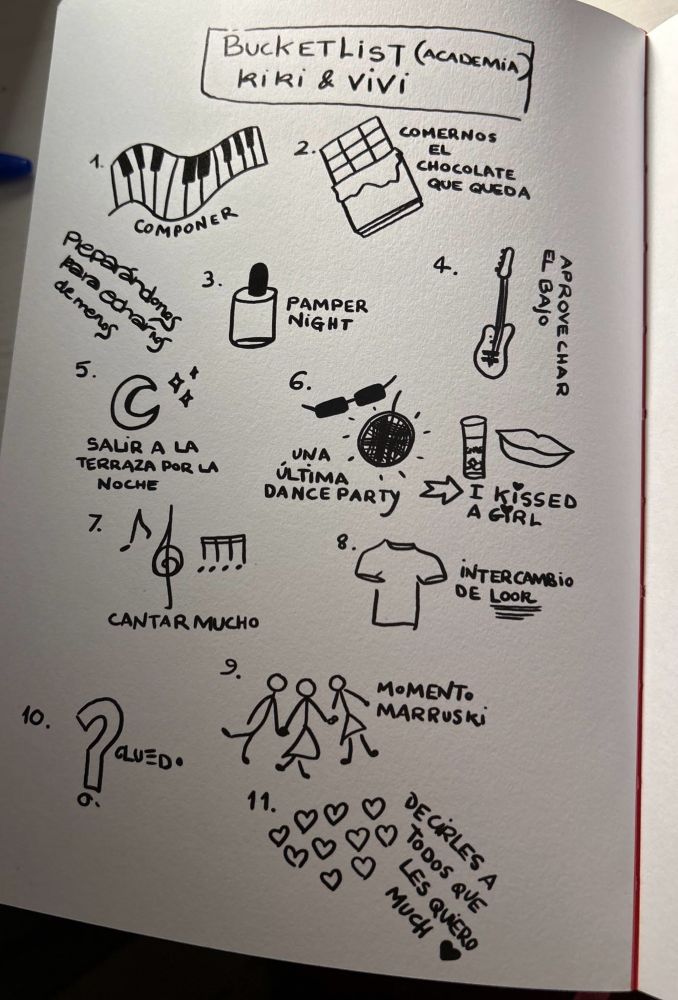 BUCKETLIST (ACADEMIA)
KIKI & VIVI
1.
COMPONER
2.
COMERNOS
EL
CHOCOLATE
QUE QUEDA
Preparándonos
para echarnos
de menos
3.
PAMPER
NIGHT
4.
APROVECHAR
EL BAJO
5.
SALIR A LA
TERRAZA POR LA
NOCHE
6.
UNA
ÚLTIMA
DANCE PARTY
I KISSED
A GIRL
7.
CANTAR MUCHO
8.
INTERCAMBIO
DE LOOK
9.
MOMENTO
MARRUSKI
10.
CLUEDO
11.
DECIRLES A
TODOS QUE
LES QUIERO
MUCH